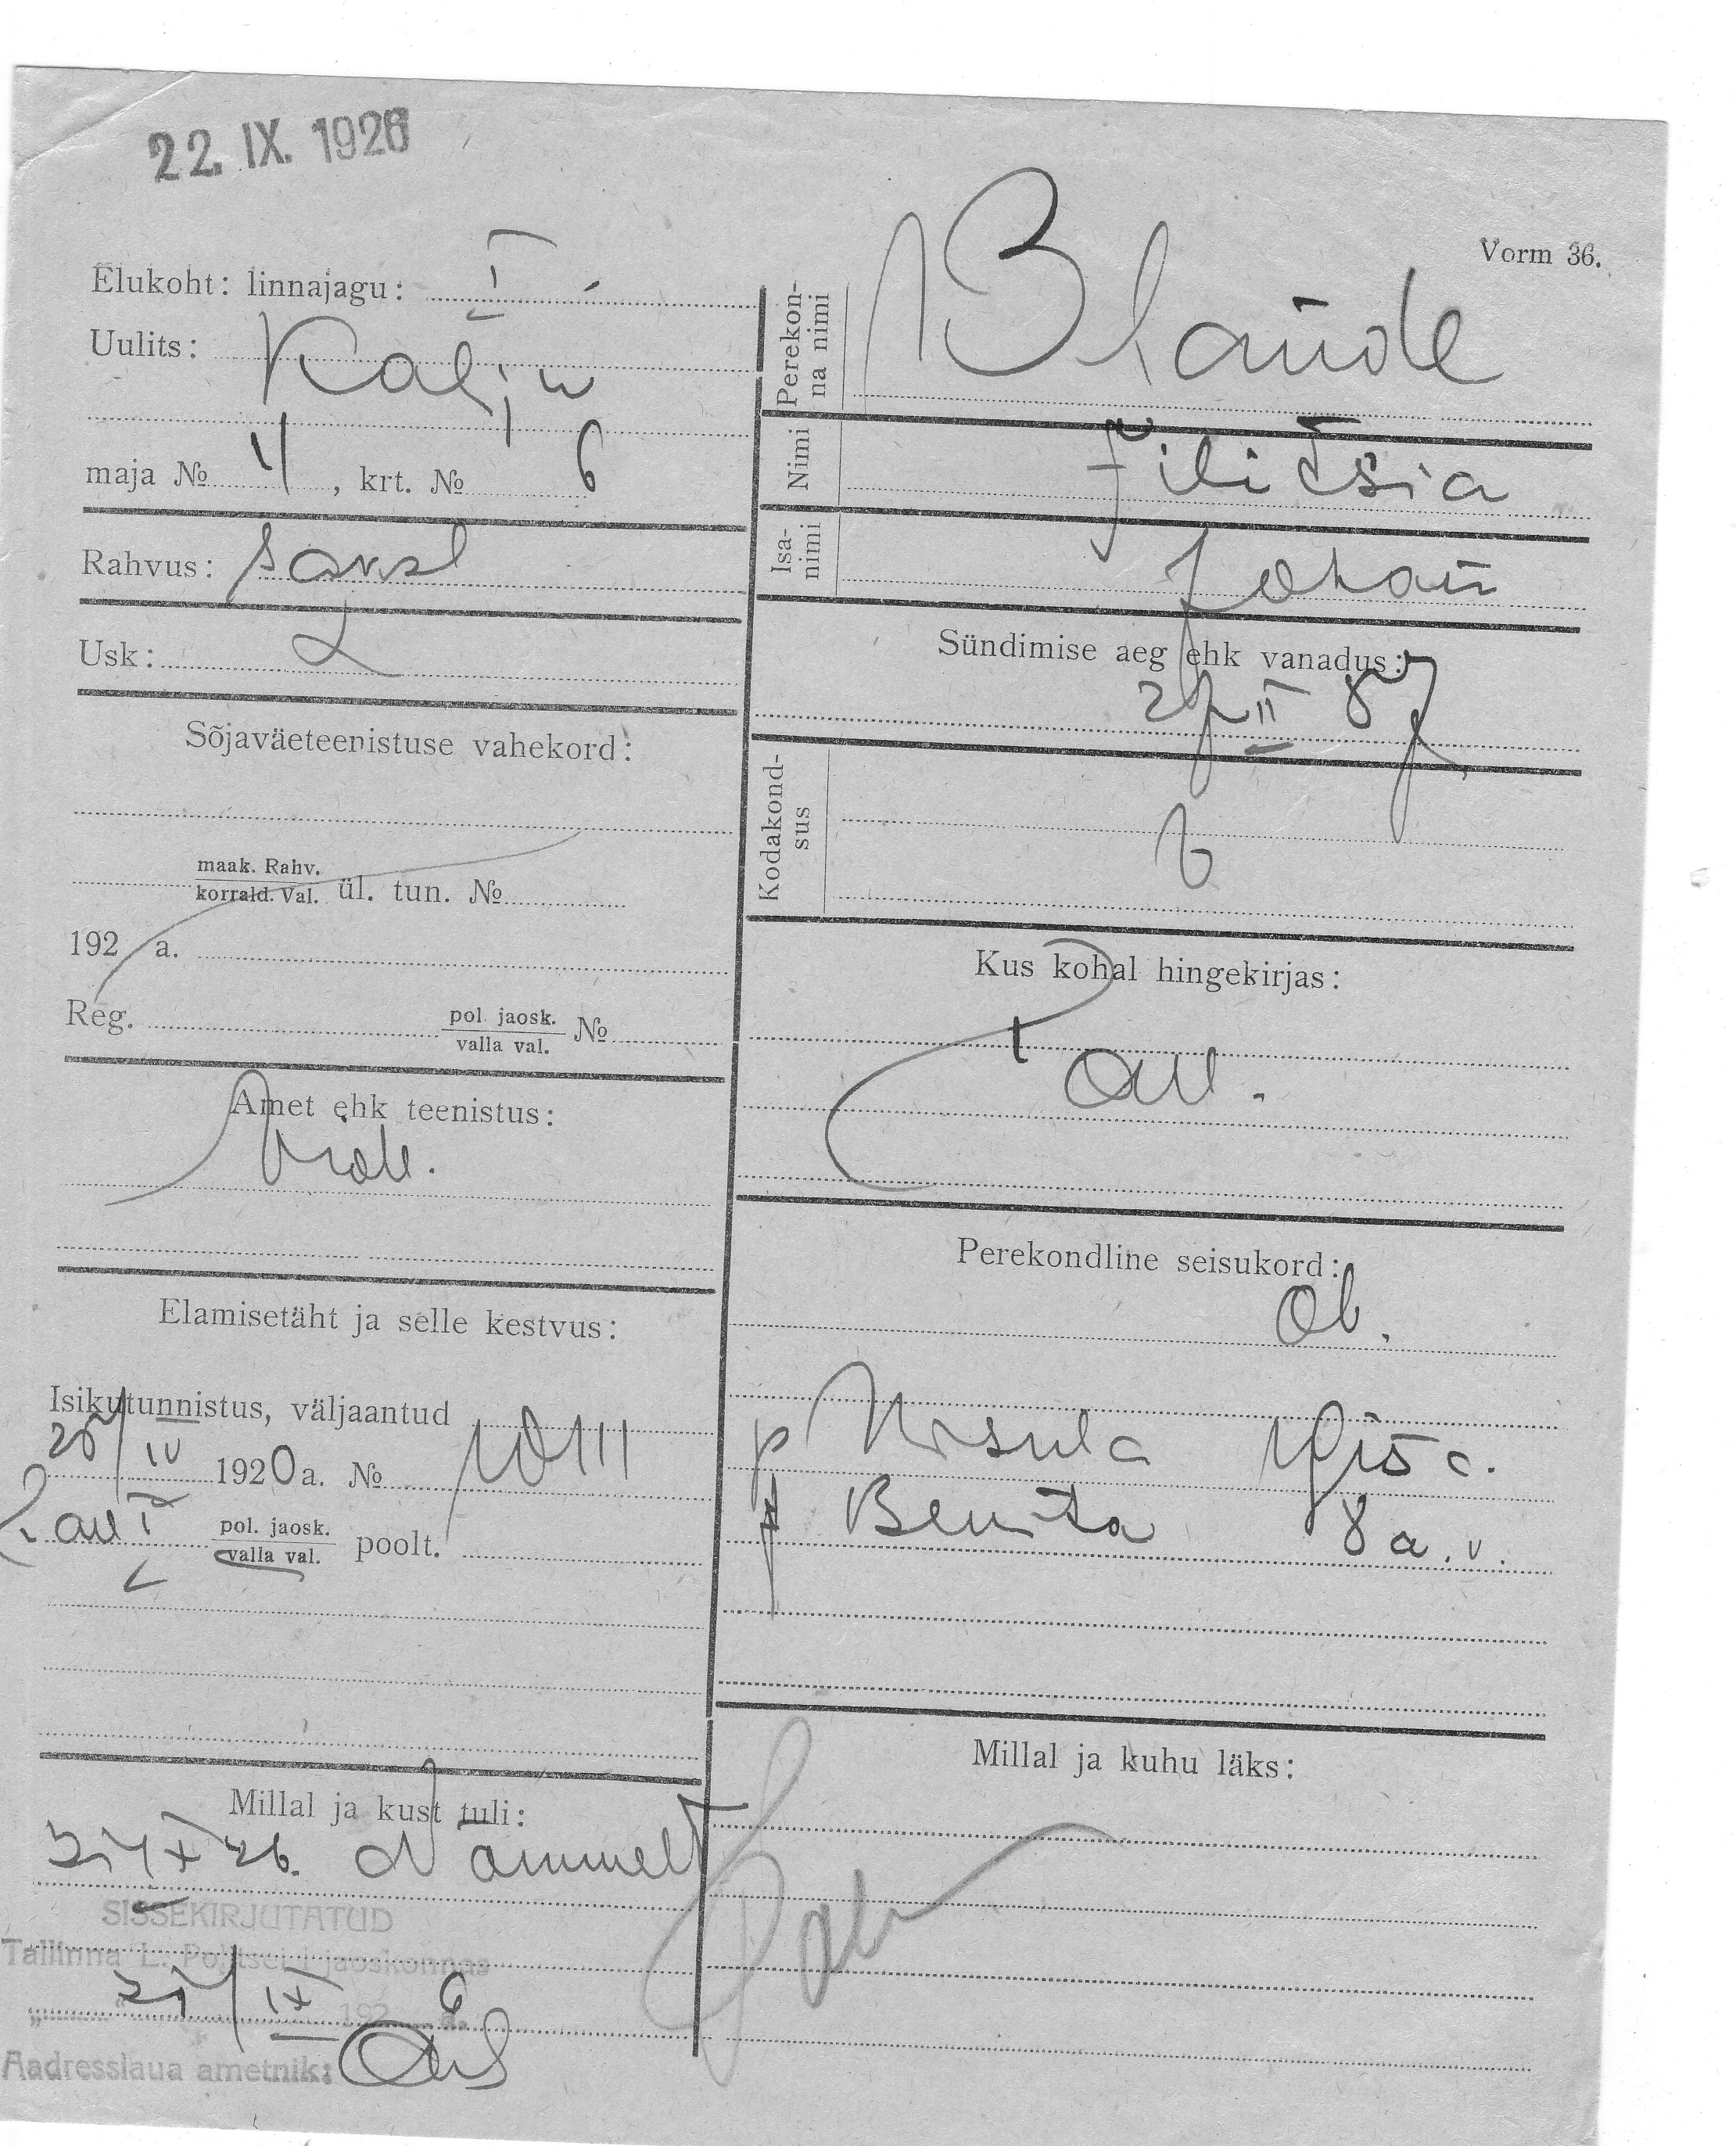 22. IX. 1926
Vorm 36.
Elukoht: linnajagu: I
Uulits: Kalju
maja № 4, krt. № 6
Rahvus: saksl
Usk: L
Sõjaväeteenistuse vahekord:
maak. Rahv.
korrald. Val. ül. tun. №
192 a.
Reg. pol. jaosk.
valla val. №
Amet ehk teenistus:
Elamisetäht ja selle kestvus:
Isikutunnistus, väljaantud
25/IV 1920 a. №
I pol. jaosk.
valla val. poolt.
Millal ja kust tuli:
IX 26. Nõmmelt
SISSEKIRJUTATUD
Tallinna L. Politsei I jaoskonnas
IX 192 6 a.
Aadresslaua ametnik:
Perekonna nimi
Blaude
Nimi
Filitsia
Isanimi
Johan
Sündimise aeg ehk vanadus:
II 87
Kodakondsus
Kus kohal hingekirjas:
Perekondline seisukord:
ab.
p Ursula
p Benita 8 a. v.
Millal ja kuhu läks: